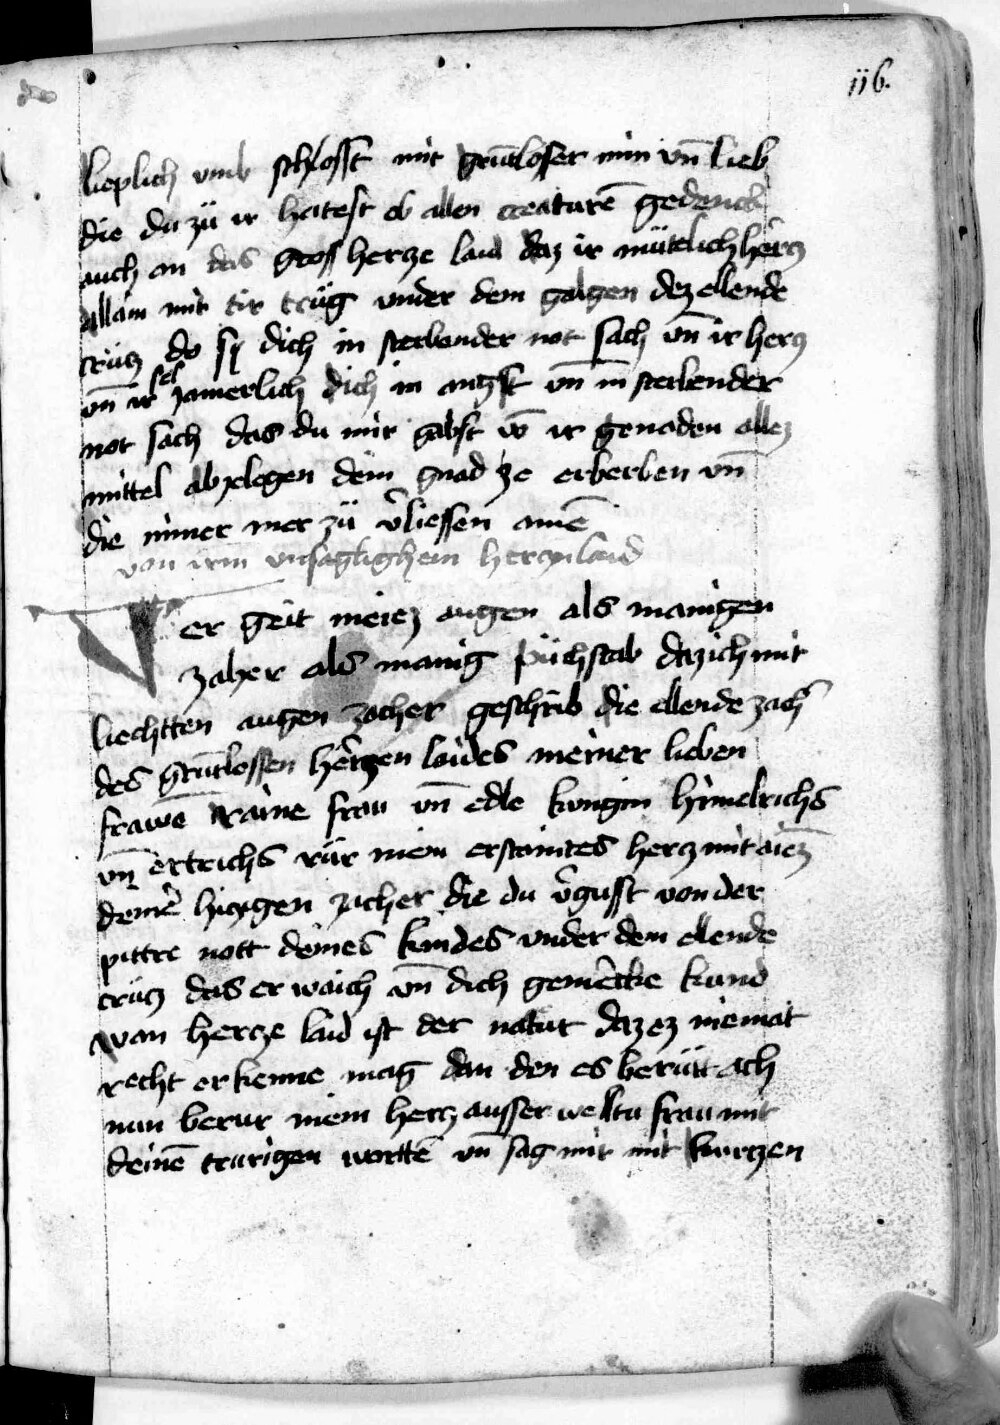 116.
lieplich vmb schlosst mit grūtloser min vn̄ lieb
die du zü ir hatest ob allen creaturē gedenck
auch an das gross hercze laid daz ir mütelich hercz
allain mit dir trüg vnder dem galgen dez ellende
crücz do sy dich in sterbender not sach vn̄ ir hercz
vn̄ ir sel jamerlich dich in angst vn̄ in sterbender
not sach das du mir gabst vō ir genaden allez
mittel abzelegen dein gnad ze erberben vn̄
die nimer mer zü v̄liessen amē
von irm vnsaglighem hercznlaid
Wer geit meiez augen als manigen
zaher als manig püchstab daz ich mit
liechtten augen zacher geschrib die ellende zach
des grūtlossen herczen laides meiner lieben
frawē raine frau vn̄ edle kungin himelrichs
vn̄ ertrichs rür mein erstaintes hercz mit aiez
deine hiczgen zacher die du v̄gusst von der
pittre nott deines kindes vnder dem ellende
crücz das er waich vn̄ dich gemercke kund
wan hercze laid ist der natur daz ez niemat
recht erkenne mag dan den es berütt ach
nun berur mein hercz ausser welltu frau mit
deinē trurigen wortē vn̄ sag mir mit kurczen